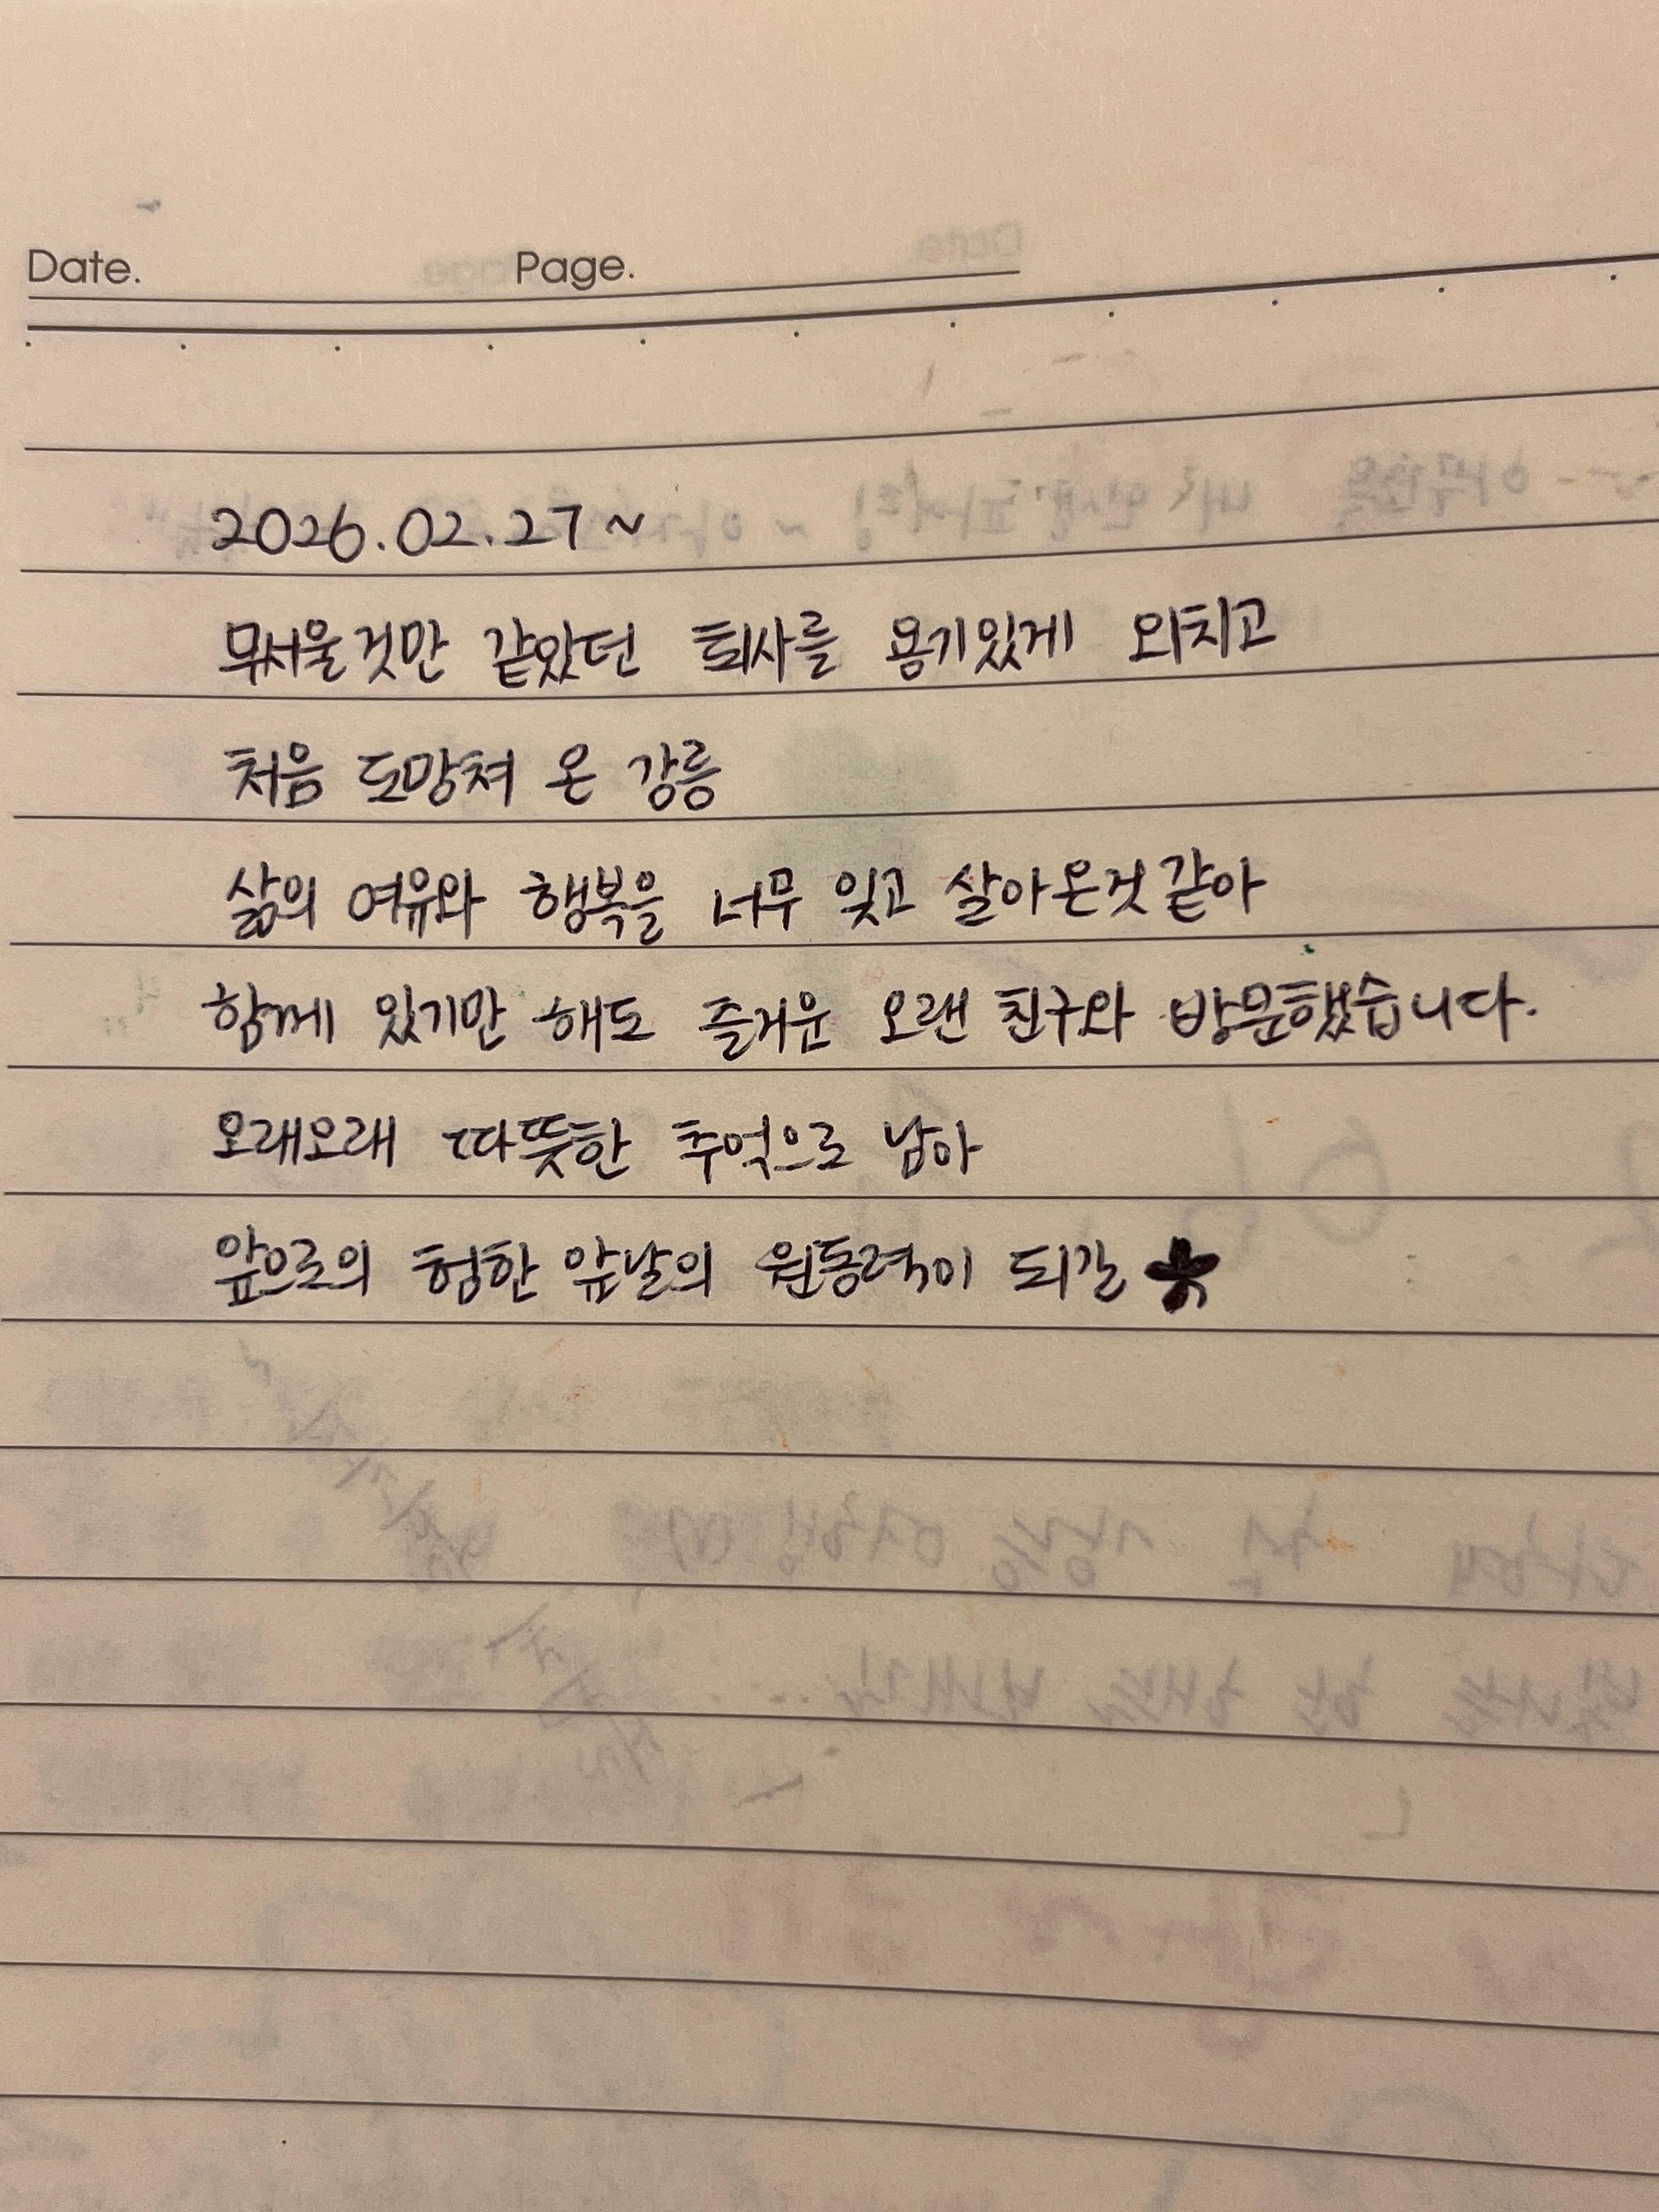 Date. Page.
2026.02.27~
무서울것만 같았던 퇴사를 용기있게 외치고
처음 도망쳐 온 강릉
삶의 여유와 행복을 너무 잊고 살아온것 같아
함께 있기만 해도 즐거운 오랜 친구와 방문했습니다.
오래오래 따뜻한 추억으로 남아
앞으로의 험한 앞날의 원동력이 되길